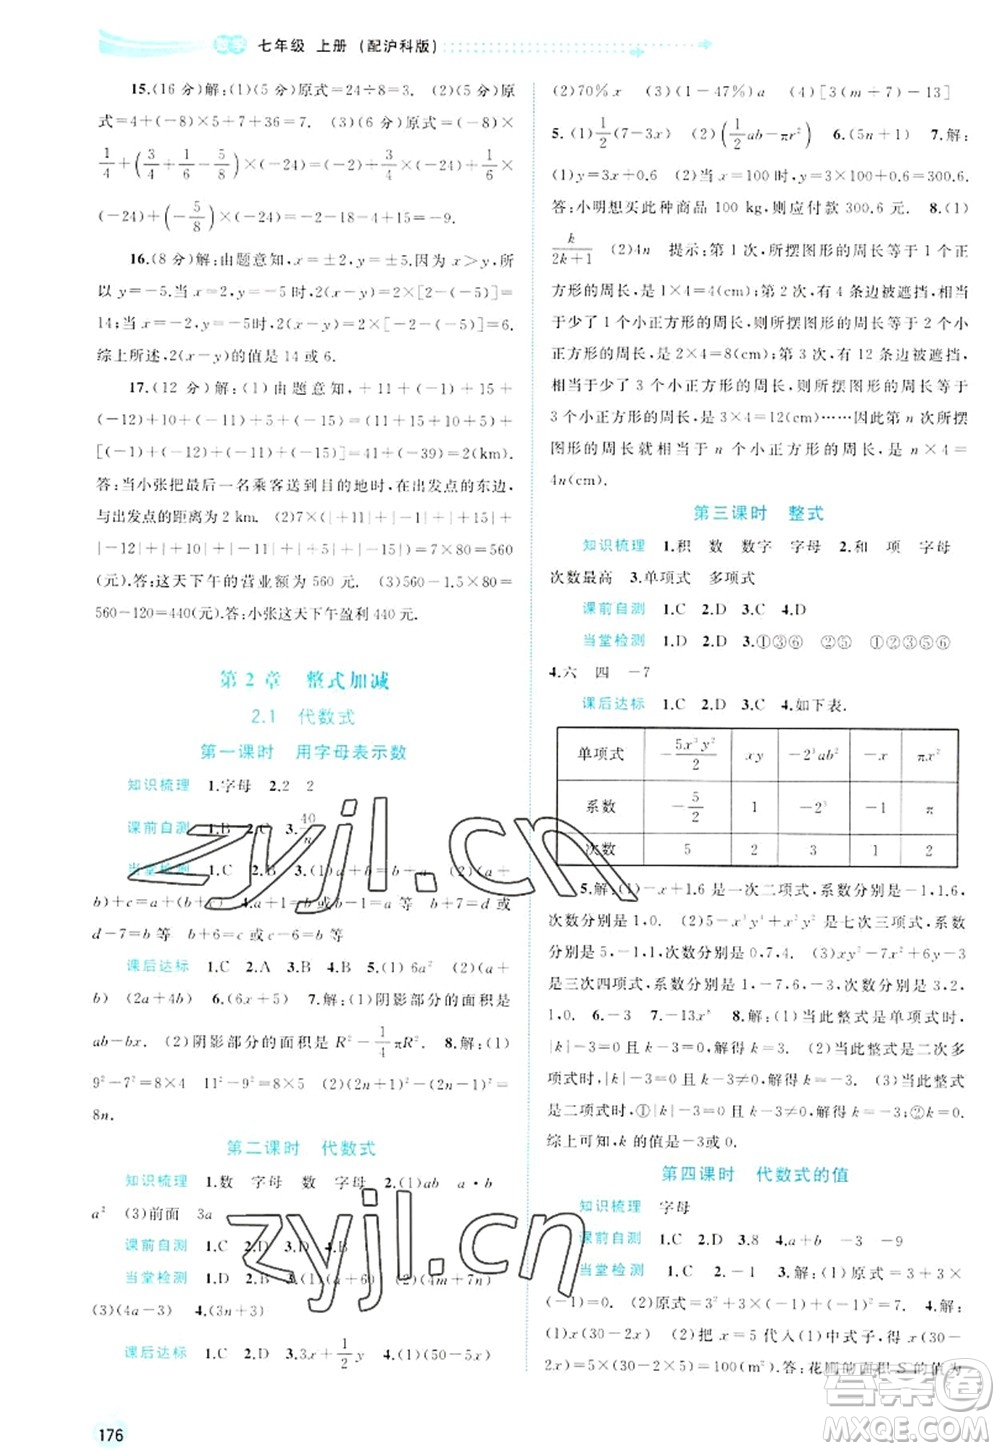 数学 七年级 上册 (配沪科版)
15.(16 分)解:(1)(5 分)原式=24÷8=3. (2)(5 分)原
式=4+(-8)×2+7+36=7. (3)(6 分)原式=(-8)×
1/4+(3/4+1/6-5/8)×(-24)=(-8)×1/4+3/4×(-24)+1/6×
(-24)+(-5/8)×(-24)=-2-18-4+15=-9.
16.(8 分)解:由题意知,x=±2,y=±5.因为 x>y,所
以 y=-5.当 x=2,y=-5 时,2(x-y)=2×[2-(-5)]=
14;当 x=-2,y=-5 时,2(x-y)=2×[-2-(-5)]=6.
综上所述,2(x-y)的值是 14 或 6.
17.(12 分)解:(1)由题意知,+11+(-2)+15+
(-12)+10+(-11)+5+(-15)=(11+15+10+5)+
[(-2)+(-12)+(-11)+(-15)]=41+(-39)=2(km).
答:当小张把最后一名乘客送到目的地时,在出发点的东边,
与出发点的距离为 2 km. (2)7×(|+11|+|-2|+|+15|+
|-12|+|+10|+|-11|+|+5|+|-15|)=7×80=
560(元).答:这天下午的营业额为 560 元. (3)560-1.5×80=
560-120=440(元).答:小张这天下午盈利 440 元.
第 2 章 整式加减
2.1 代数式
第一课时 用字母表示数
知识梳理 1.字母 2.2 2
课前自测 1.B 2.C 3.40/n
当堂检测 1.C 2.D 3.(1)a+b=b+a (2)(a+
b)+c=a+(b+c) 4.a-1=b+6 或 a-7=b 或
a-b=7 或 a-6=b+1 或 c-6=b 等
课后达标 1.C 2.A 3.B 4.D 5.(1)6a² (2)(a+
b) (2a+4b) 6.(6x+5) 7.解:(1)阴影部分的面积是
ab-bx. (2)阴影部分的面积是 R²-1/4πR². 8.解:(1)
9²-7²=8×4 11²-9²=8×5 (2)(2n+1)²-(2n-1)²=
8n.
第二课时 代数式
知识梳理 1.数 字母 数 字母 2.(1)ab a·b
a² (3)前面 3a
课前自测 1.C 2.D 3.D 4.B
当堂检测 1.C 2.D 3.(1)(2x-3) (2)(4m+7n)
(3)(4a-3) 4.(3n+3)
课后达标 1.C 2.D 3.3x+1/2y 4.(1)(50-5x)
(2)70%x (3)(1-47%)a (4)[3(m+7)-13]
5.(1)1/2(7-3x) (2)(1/2ab-πr²) 6.(5n+1) 7.解:
(1)y=3x+0.6 (2)当 x=100 时,y=3×100+0.6=300.6.
答:小明想买此种商品 100 kg,则应付款 300.6 元. 8.(1)
k/(2k+1) (2)4n 提示:第 1 次,所摆图形的周长等于 1 个正
方形的周长,是 1×4=4(cm);第 2 次,有 4 条边被遮挡,相当
于少了 1 个小正方形的周长,则所摆图形的周长等于 2 个小正
方形的周长,是 2×4=8(cm);第 3 次,有 12 条边被遮挡,相当
于少了 3 个小正方形的周长,则所摆图形的周长等于
3 个小正方形的周长,是 3×4=12(cm)……因此第 n 次所摆
图形的周长就相当于 n 个小正方形的周长,为 n×4=
4n(cm).
第三课时 整式
知识梳理 1.积 数 数字 字母 2.和 项 字母
次数最高 3.单项式 多项式
课前自测 1.C 2.D 3.C 4.D
当堂检测 1.D 2.D 3.①③⑥ ②⑤ ①②③⑤⑥
4.六 四 -7
课后达标 1.C 2.D 3.D 4.如下表.
单项式 -5x³y²/2 xy -2³ab² -x πx²
系数 -5/2 1 -2³ -1 π
次数 5 2 3 1 2
5.解:(1)-x+1.6 是一次二项式,系数分别是-1,1.6,
次数分别是 1,0. (2)5-x³y³+x²y² 是七次三项式,系数
分别是 5,-1,1,次数分别是 0,7,4. (3)xy²-7x²+6x+1
是三次四项式,系数分别是 1,-7,6,1,次数分别是 3,2,
1,0. 6.-3 7.-13x⁷ 8.解:(1)当此整式是单项式时,
|k|-3=0 且 k-3=0,解得 k=3. (2)当此整式是二次多
项式时,|k|-3=0 且 k-3≠0,解得 k=-3. (3)当此整式
是二项式时,①|k|-3=0,解得 k=-3;②k=0.
综上可知,k 的值是-3 或 0.
第四课时 代数式的值
知识梳理 字母
课前自测 1.C 2.D 3.8 4.a+b -3 -9
当堂检测 1.C 2.-1 3.解:(1)原式=3+3×
(-1)=0. (2)原式=3²+3×(-1)=9-3=6. 4.解:
(1)x(30-2x) (2)把 x=5 代入(1)中式子,得 x(30-
2x)=5×(30-2×5)=100(m²).答:花圃的面积 S 的值为
176
zyjl.cn
zyjl.cn
答案圈
MXQE.COM